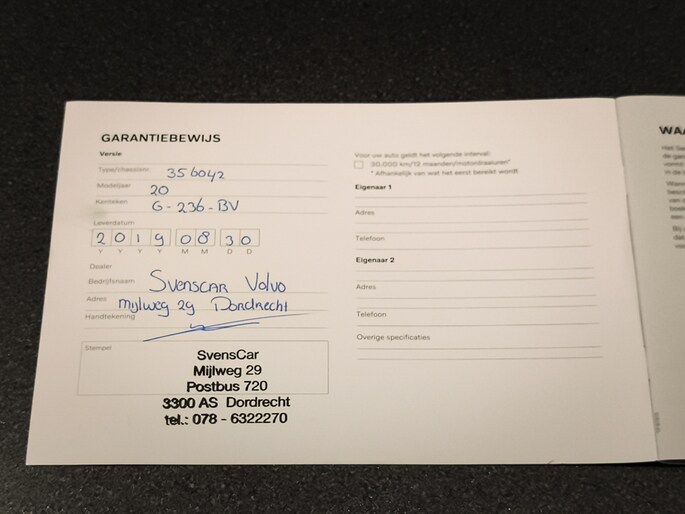 GARANTIEBEWIJS
Versie
Type/chassisnr. 356042
Modeljaar 20
Kenteken G-236-BV
Leverdatum
2 0 1 9 0 8 3 0
Y Y Y Y M M D D
Dealer
Bedrijfsnaam Svenscar Volvo
Adres Mijlweg 29 Dordrecht
Handtekening
Stempel
SvensCar
Mijlweg 29
Postbus 720
3300 AS Dordrecht
tel.: 078 - 6322270
Voor uw auto geldt het volgende interval:
30.000 km/12 maanden/motordraaiuren*
* Afhankelijk van wat het eerst bereikt wordt
Eigenaar 1
Adres
Telefoon
Eigenaar 2
Adres
Telefoon
Overige specificaties
WAA